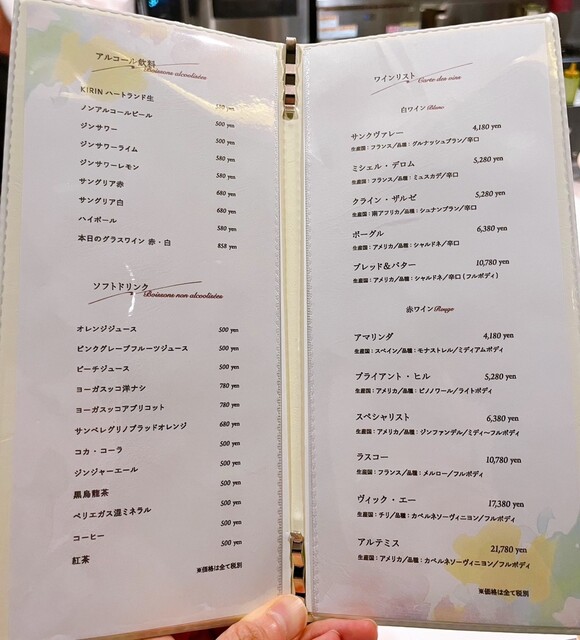 アルコール飲料
Boissons alcoolisées
KIRIN ハートランド生 580 yen
ノンアルコールビール 500 yen
ジンサワー 500 yen
ジンサワーライム 580 yen
ジンサワーレモン 580 yen
サングリア赤 680 yen
サングリア白 680 yen
ハイボール 580 yen
本日のグラスワイン 赤・白 858 yen
ソフトドリンク
Boissons non alcoolisées
オレンジジュース 500 yen
ピンクグレープフルーツジュース 500 yen
ピーチジュース 500 yen
ヨーガスッコ洋ナシ 780 yen
ヨーガスッコアプリコット 780 yen
サンペレグリノブラッドオレンジ 680 yen
コカ・コーラ 500 yen
ジンジャーエール 500 yen
黒烏龍茶 500 yen
ペリエガス混ミネラル 500 yen
コーヒー 500 yen
紅茶 500 yen
※価格は全て税別
ワインリスト
Carte des vins
白ワイン Blanc
サンクヴァレー 4,180 yen
生産国：フランス/品種：グルナッシュブラン/辛口
ミシェル・デロム 5,280 yen
生産国：フランス/品種：ミュスカデ/辛口
クライン・ザルゼ 5,280 yen
生産国：南アフリカ/品種：シュナンブラン/辛口
ボーグル 6,380 yen
生産国：アメリカ/品種：シャルドネ/辛口
ブレッド＆バター 10,780 yen
生産国：アメリカ/品種：シャルドネ/辛口（フルボディ）
赤ワイン Rouge
アマリンダ 4,180 yen
生産国：スペイン/品種：モナストレル/ミディアムボディ
ブライアント・ヒル 5,280 yen
生産国：アメリカ/品種：ピノノワール/ライトボディ
スペシャリスト 6,380 yen
生産国：アメリカ/品種：ジンファンデル/ミディ〜フルボディ
ラスコー 10,780 yen
生産国：フランス/品種：メルロー/フルボディ
ヴィック・エー 17,380 yen
生産国：チリ/品種：カベルネソーヴィニヨン/フルボディ
アルテミス 21,780 yen
生産国：アメリカ/品種：カベルネソーヴィニヨン/フルボディ
※価格は全て税別